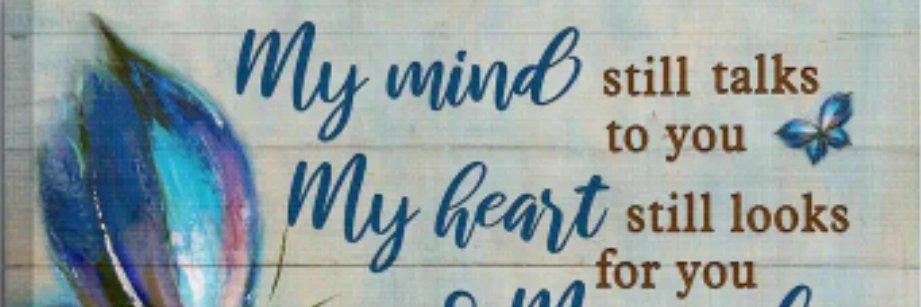 My mind still talks
to you
My heart still looks
for you